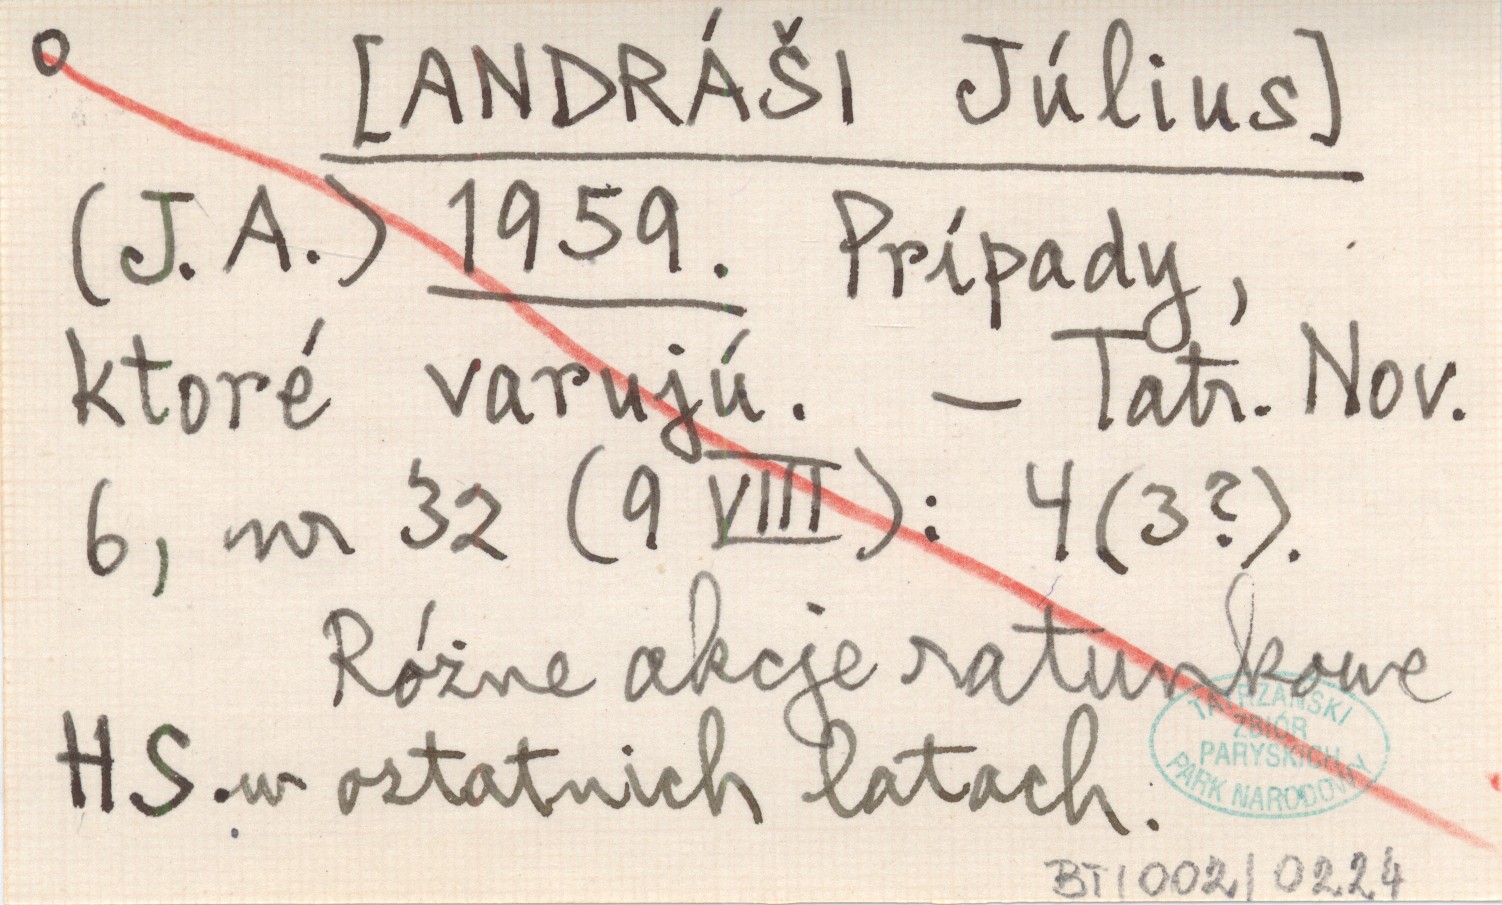 [ANDRÁŠI Július]
(J.A.) 1959. Prípady,
ktoré varujú. — Tatr. Nov.
6, nr 32 (9 VIII): 4(3?).
Różne akcje ratunkowe
HS. w ostatnich latach.
TATRZAŃSKI
ZBIÓR
PARYSKICH
PARK NARODOWY
BT/002/0224